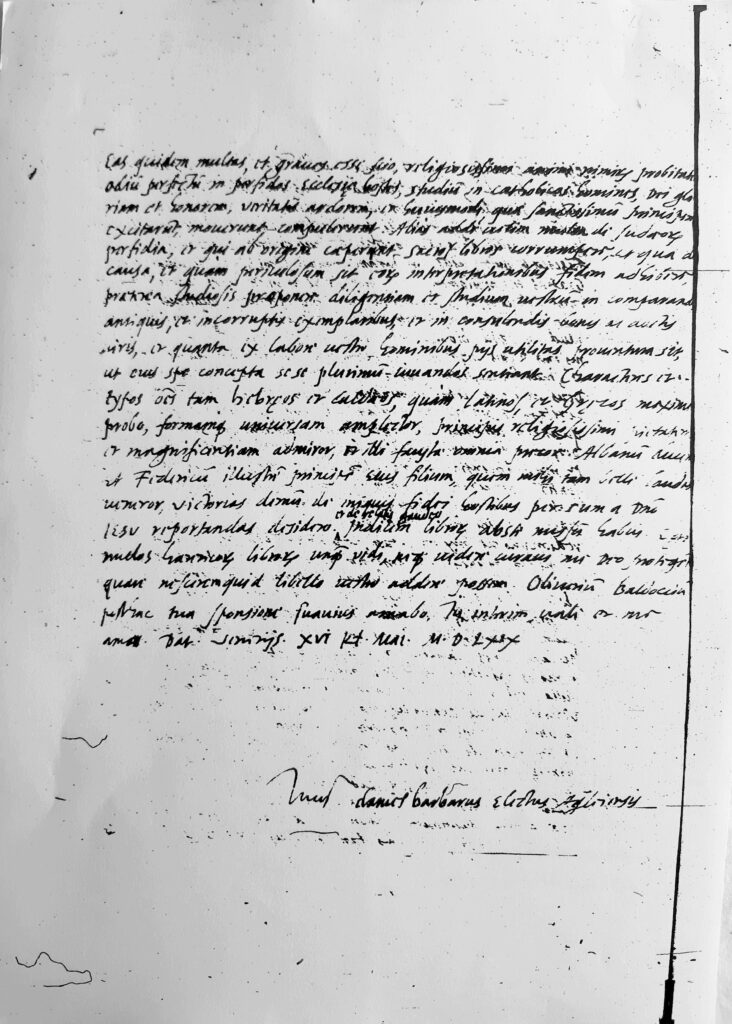 Eas quidem multas, et graves esse scio, religiosissimi animi nimirũ probitatẽ
odiũ perfectũ in perfidos Ecclesię hostes, studiũ in catholicos homines, Dei glo
riam et honorem, veritatis ardorem, et huiusmodi, quę sanctissimũ Principem
excitarũt, moverunt, compulerunt. Alias addi iustim multas de Iudęorũ
perfidia, et qui ab origine cęperunt sacros libros corrumpere, et qua de
causa, et quam periculosum sit eorũ interpretationibus fidem adhibere,
pręterea studiosis proponere diligentiam et studium vestrũ in comparandis
antiquis, et incorruptis exemplaribus, et in consulendis bonis ac doctis
viris, et quanta ex labore vestro hominibus pijs utilitas proventura sit,
ut eius spe concepta sese plurimũ iuvandos sentiant. Characteres et
typos oẽs tam hebręos et caldęos, quam latinos, et gręcos maxime
probo, formamq universam amplector, principis religiosissimi pietatẽ
et magnificentiam admiror, et illi fausta omnia precor. Albanũ
et Federicũ illustrẽ principẽ eius filium, quem tam belli
veneror, victorias demũ de iniquis fidei hostibus per summa Dño
IESV reportandas desidero et de reliquis gaudeo. Indicem librorũ abs te missũ habui.
nullos hauricos libros unq vidi, neq videre curavi me Deo protegente
quare nescirem quid libello vestro addere possem. Oliverium
posthac tua sponsione suavius amabo. Tu interim vale et me
ama. Dat. Venetijs XVI Kł Mai. M. D. LXIX
Daniel Barbarus Electus Aquileiensis